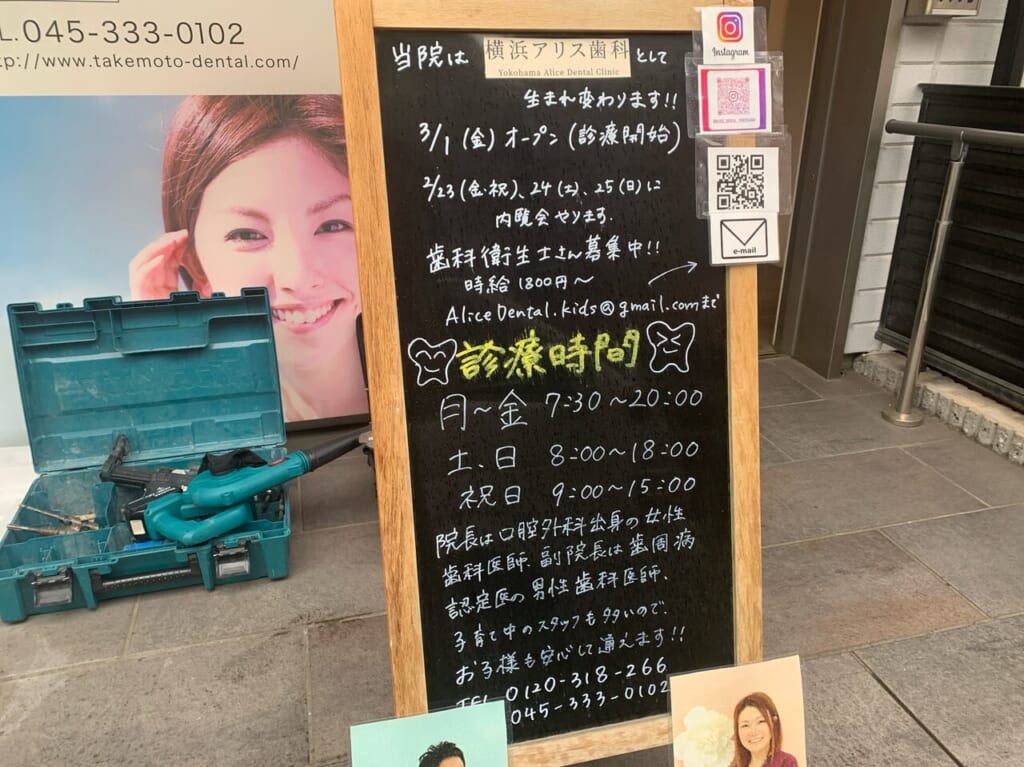 L.045-333-0102
tp://www.takemoto-dental.com/
当院は 横浜アリス歯科 として
Yokohama Alice Dental Clinic
生まれ変わります!!
3/1 (金) オープン (診療開始)
2/23 (金・祝)、24 (土)、25 (日) に
内覧会やります.
歯科衛生士さん募集中!!
時給 1800円〜
AliceDental.kids@gmail.comまで
診療時間
月〜金 7:30〜20:00
土、日 8:00〜18:00
祝日 9:00〜15:00
院長は口腔外科出身の女性
歯科医師. 副院長は歯周病
認定医の男性歯科医師、
子育て中のスタッフも多いので、
お子様も安心して通えます!!
TEL 0120-318-266
045-333-0102
Instagram
e-mail